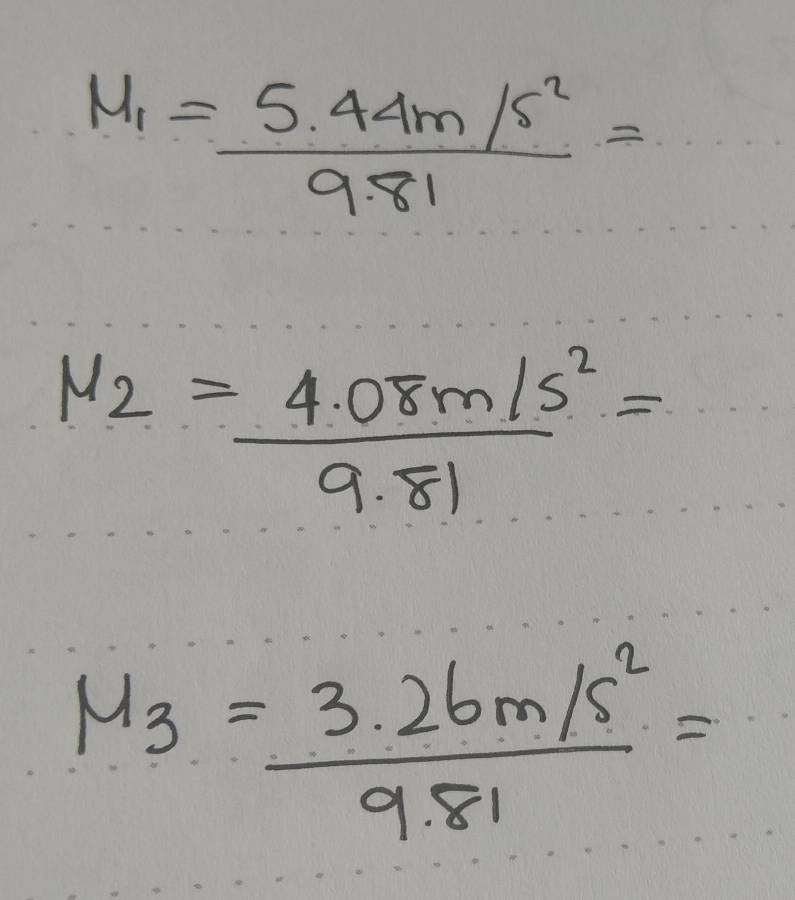 μ₁ = 5.44m/s² =
9.81
μ2 = 4.08m/s² =
9.81
μ3 = 3.26m/s² =
9.81